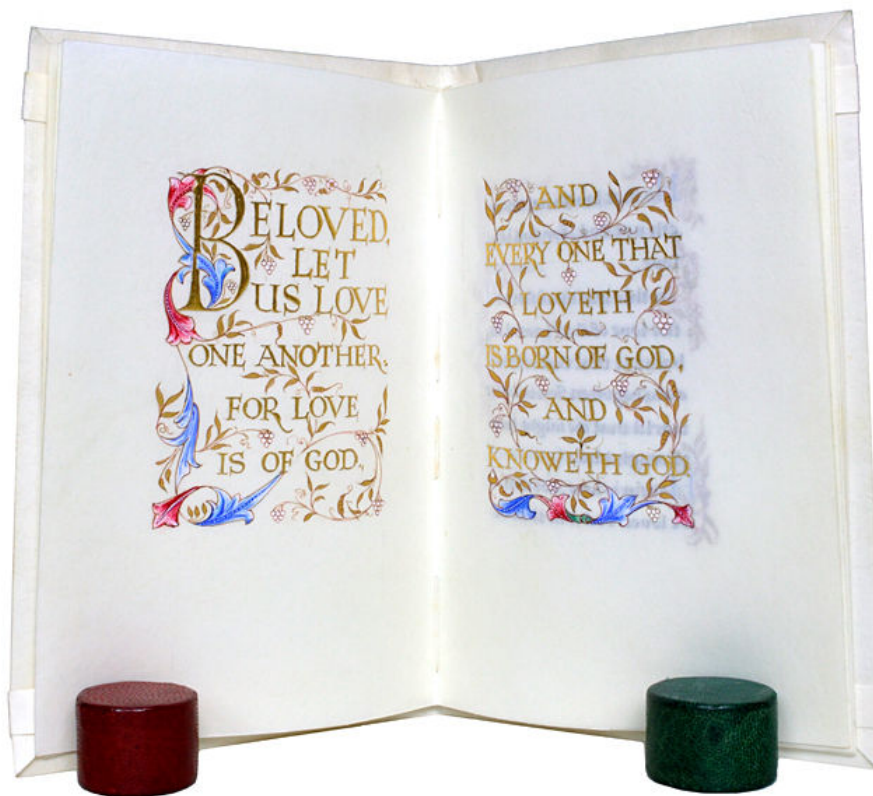 BELOVED,
LET
US LOVE
ONE ANOTHER.
FOR LOVE
IS OF GOD.,
AND
EVERY ONE THAT
LOVETH
IS BORN OF GOD,
AND
KNOWETH GOD